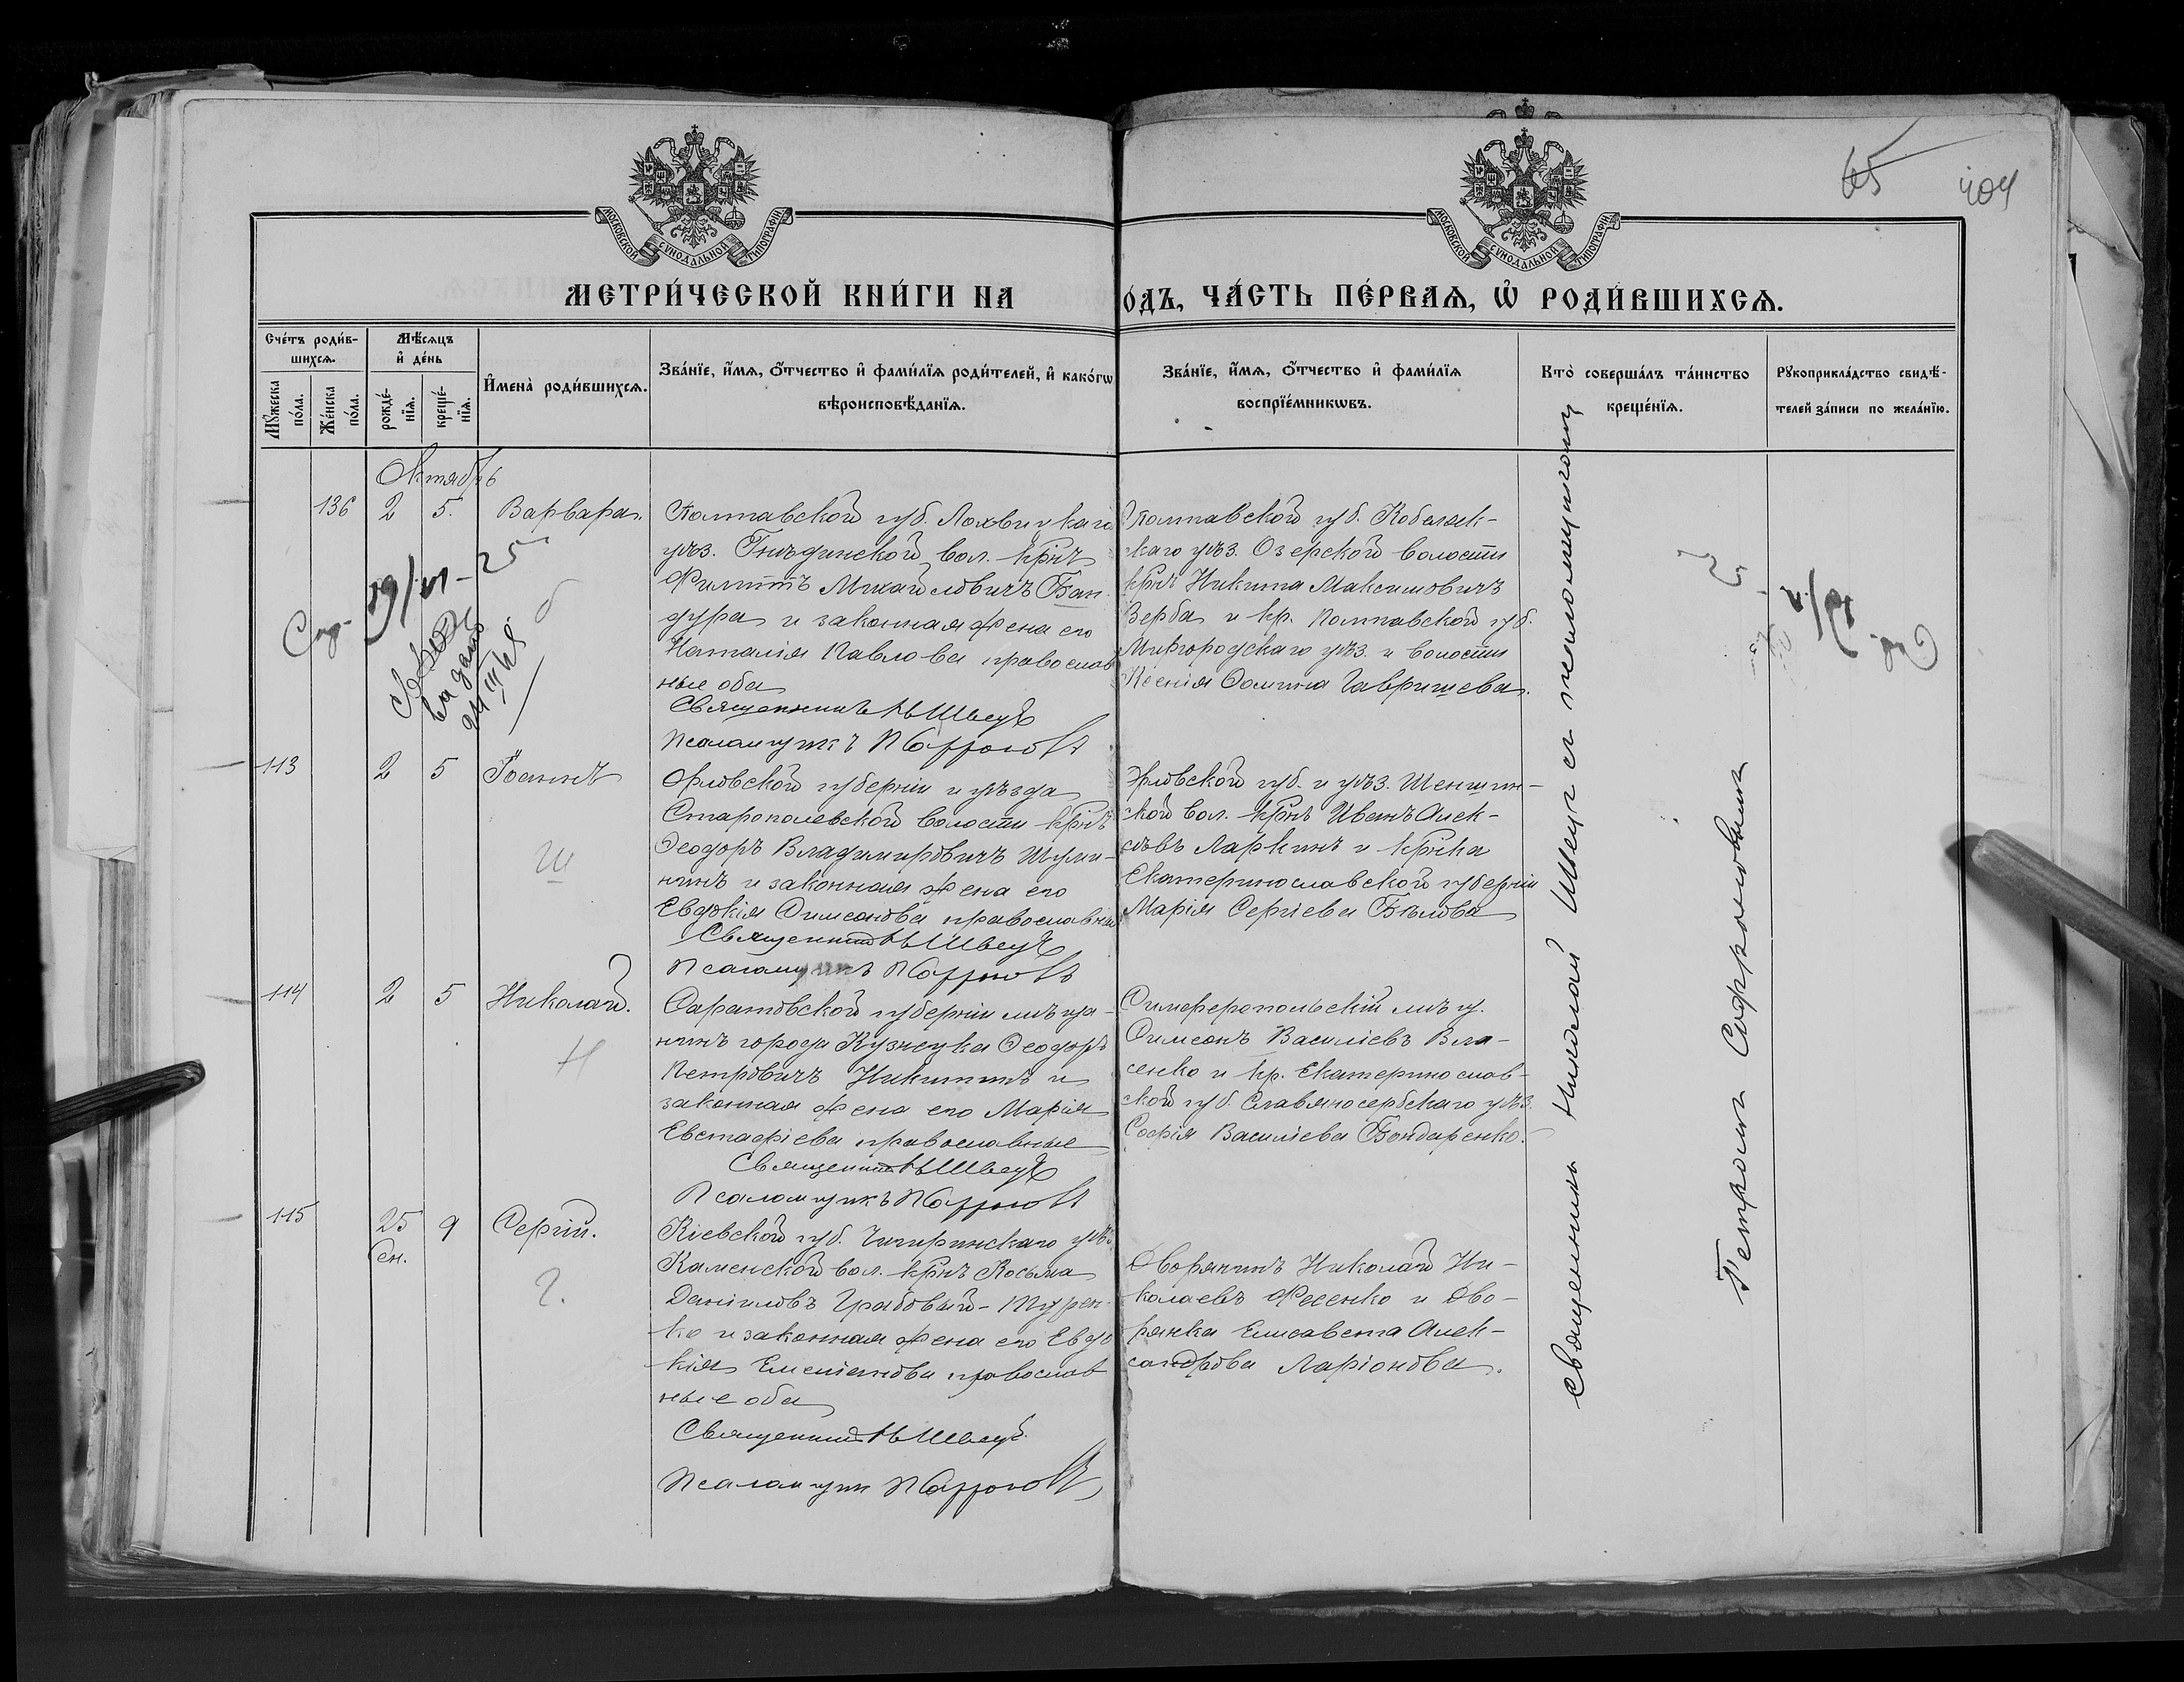 65 404
МОСКОВСКОЙ СѴНОДАЛЬНОЙ ТИПОГРАФІИ
МОСКОВСКОЙ СѴНОДАЛЬНОЙ ТИПОГРАФІИ
МЕТРИ́ЧЕСКОЙ КНИ́ГИ НА
О́ДЪ, ЧА́СТЬ ПЕ́РВАѦ, Ѡ҆ РОДИ́ВШИХСѦ.
Сче́тъ роди́в-
шихсѧ.
Мѣ́сѧцъ
и҆ де́нь
Мꙋ́жеска
по́ла.
Же́нска
по́ла.
рожде́-
нїѧ.
креще́-
нїѧ.
И҆мена̀ роди́вшихсѧ.
Зва́нїе, и҆́мѧ, ѻ҆́тчество и҆ фами́лїѧ роди́телей, и҆ како́гѡ
вѣроисповѣ́данїѧ.
Зва́нїе, и҆́мѧ, ѻ҆́тчество и҆ фами́лїѧ
воспрїе́мникѡвъ.
Кто̀ соверша́лъ та́инство
креще́нїѧ.
Рꙋкоприкла́дство свидѣ́-
телей за́писи по жела́нїю.
Октябрь
136 2 5. Варвара.
Полтавской губ. Лохвицкаго
уѣз. Гнѣдинской вол. крнъ
Филиппъ Михайловичъ Бан-
дура и законная жена его
Наталія Павлова православ
ные оба
Священникъ Н Швецъ
Псаломщикъ П Софроновъ
Полтавской губ. Кобеляк-
скаго уѣз. Озерской волости
крнъ Никита Максимовичъ
Верба и кр. Полтавской губ.
Миргородскаго уѣз. и волости
Ксенія Фомина Гавришева.
113 2 5 Іоаннъ
Орловской губерніи и уѣзда
Старополевской волости крнъ
Ѳеодоръ Владимировичъ Шули-
нинъ и законная жена его
Евдокія Симеонова православные
Священникъ Н Швецъ
Псаломщикъ П Софроновъ
Орловской губ. и уѣз. Шеншин-
ской вол. крнъ Иванъ Алек-
сѣевъ Ларкинъ и крнка
Екатеринославской губерніи
Марія Сергіева Бѣлова
Ш
114 2 5 Николай.
Саратовской губерніи мѣща-
нинъ города Кузнецка Ѳеодоръ
Петровичъ Никитинъ и
законная жена его Марія
Евстафіева православные
Священникъ Н Швецъ
Псаломщикъ П Софроновъ
Симферопольскій мѣщ.
Симеонъ Василіевъ Вла-
сенко и кр. Екатеринослав-
ской губ. Славяносербскаго уѣз.
Софія Василіева Бондаренко.
Н
115 25 9 Сергій.
Сен.
Кіевской губ. Чигиринскаго уѣз.
Каменской вол. крнъ Косьма
Даніиловъ Грабовый-Турен-
ко и законная жена его Евдо
кія Емеліанова православ
ные оба
Священникъ Н Швецъ
Псаломщик П Софроновъ
Дворянинъ Николай Ни-
колаевъ Фесенко и дво-
рянка Елисавета Алек-
сандрова Ларіонова.
Г.
Священникъ Николай Швецъ съ псаломщикомъ
Петромъ Софроновымъ